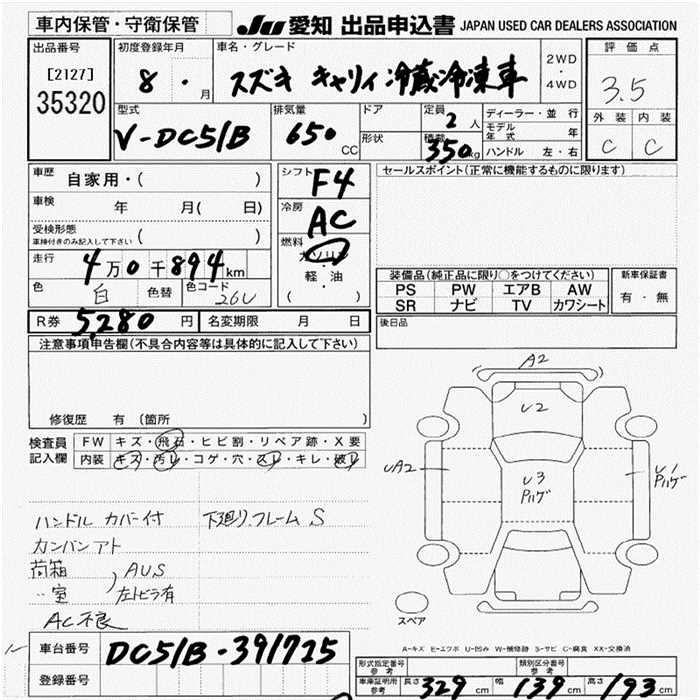 車内保管・守衛保管
JU 愛知 出品申込書 JAPAN USED CAR DEALERS ASSOCIATION
出品番号
[2127]
35320
初度登録年月
8 ・ 月
車名・グレード
スズキ キャリィ 冷蔵冷凍車
2WD
・
4WD
評価点
3.5
外装 内装
C C
型式
V-DC51B
排気量
650 CC
ドア
形状
定員 2 人
積載 350 kg
ディーラー・並行
モデル年式 年
ハンドル 左・右
車歴 自家用・( )
車検 年 月( 日)
受検形態
車検付きのみ記入して下さい ( )
走行 4万0千894km
色 白 色替 色コード 26U
シフト F4
冷房 AC
燃料 ガソリン
軽・油
( )
セールスポイント(正常に機能するものに限ります)
装備品(純正品に限り○をつけてください)
PS PW エアB AW
SR ナビ TV カワシート
新車保証書
有・無
R券 5,280 円 名変期限 月 日
後日品
注意事項申告欄(不具合内容等は具体的に記入して下さい)
修復歴 有(箇所 )
検査員記入欄
FW キズ・飛石・ヒビ割・リペア跡・X要
内装 キズ・汚レ・コゲ・穴・スレ・キレ・破レ
A2
U2
UA2
U3
Pハゲ
U1
Pハゲ
スペア
ハンドル カバー付 下廻り、フレーム S
カンバンアト
荷箱
〃室 ) AUS
左トビラ有
AC不良
車台番号 DC51B-391725
登録番号
A-キズ E-エクボ U-凹み W-補修跡 S-サビ C-腐食 XX-交換済
形式指定番号 参考
類別区分番号 参考
車庫証明所 参考 長さ 329 cm 幅 139 cm 高さ 193 cm